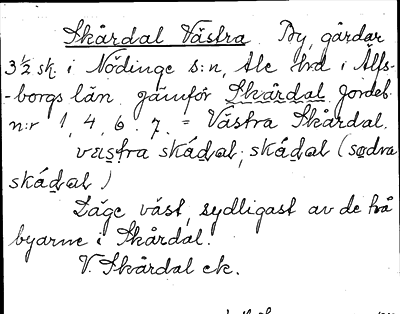 Skårdal Västra. By, gårdar
3½ sk. i Nödinge s:n, Ale hrd i Älfs-
-borgs län. jämför Skårdal jordeb.
n:r 1, 4, 6. 7. = Västra Skårdal.
västra skádal, skádal (sødra
skádal)
Läge väst, sydligast av de två
byarne i Skårdal.
V. Skårdal ek.